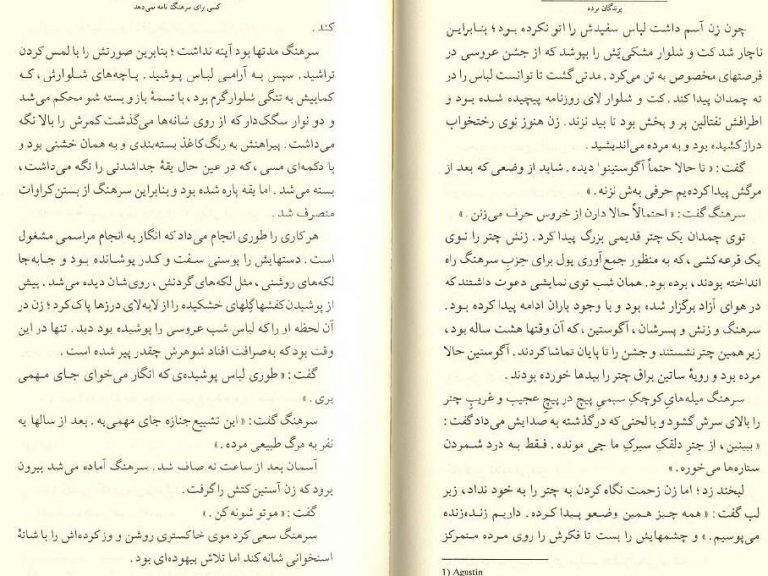 پرندگان مرده
چون زن آسم داشت لباس سفیدش را اتو نکرده بود؛ بنابراین
ناچار شد کت و شلوار مشکی‌یش را بپوشد که از جشن عروسی در
فرصتهای مخصوص به تن می‌کرد. مدتی گشت تا توانست لباس را در
ته چمدان پیدا کند. کت و شلوار لای روزنامه پیچیده شده بود و
اطرافش نفتالین پر و پخش بود تا بید نزند. زن هنوز توی رختخواب
دراز کشیده بود و به مرده می‌اندیشید.
گفت: «تا حالا حتماً آگوستینو¹ دیده. شاید از وضعی که بعد از
مرگش پیدا کرده‌یم حرفی به‌ش نزنه.»
سرهنگ گفت: «احتمالاً حالا دارن از خروس حرف می‌زنن.»
توی چمدان یک چتر قدیمی بزرگ پیدا کرد. زنش چتر را توی
یک قرعه‌کشی، که به منظور جمع‌آوری پول برای حزبِ سرهنگ راه
انداخته بودند، برده بود. همان شب توی نمایشی دعوت داشتند که
در هوای آزاد برگزار شده بود و با وجود باران ادامه پیدا کرده بود.
سرهنگ و زنش و پسرشان، آگوستین، که آن وقتها هشت ساله بود،
زیر همین چتر نشستند و جشن را تا پایان تماشا کردند. آگوستین حالا
مرده بود و رویهٔ ساتین براق چتر را بیدها خورده بودند.
سرهنگ میله‌های کوچک سیمیِ پیچ در پیچ عجیب و غریبِ چتر
را بالای سرش گشود و با لحنی که در گذشته به صدایش می‌داد گفت:
«ببینین، از چترِ دلقک سیرکِ ما چی مونده. فقط به درد شمردن
ستاره‌ها می‌خوره.»
لبخند زد؛ اما زن زحمت نگاه کردن به چتر را به خود نداد، زیر
لب گفت: «همه چیز همین وضعو پیدا کرده. داریم زنده‌زنده
می‌پوسیم.» و چشمهایش را بست تا فکرش را روی مرده متمرکز
1) Agustin
کسی برای سرهنگ نامه نمی‌دهد
کند.
سرهنگ مدتها بود آینه نداشت؛ بنابرین صورتش را با لمس کردن
تراشید. سپس به آرامی لباس پوشید. پاچه‌های شلوارش، که
کمابیش به تنگی شلوار گرم بود، با تسمهٔ باز و بسته شو محکم می‌شد
و دو نوار سگک‌دار که از روی شانه‌ها می‌گذشت کمرش را بالا نگه
می‌داشت. پیراهنش به رنگ کاغذ بسته‌بندی و به همان خشنی بود و
با دکمه‌ای مسی، که در عین حال یقهٔ جداشدنی را نگه می‌داشت،
بسته می‌شد. اما یقه پاره شده بود و بنابراین سرهنگ از بستن کراوات
منصرف شد.
هر کاری را طوری انجام می‌داد که انگار به انجام مراسمی مشغول
است. دستهایش را پوستی سفت و کدر پوشانده بود و جابه‌جا
لکه‌های روشنی، مثل لکه‌های گردنش، روی‌شان دیده می‌شد. پیش
از پوشیدن کفشها گِلهای خشکیده را از لابه‌لای درزها پاک کرد؛ زن در
آن لحظه او را که لباس شب عروسی را پوشیده بود دید. تنها در این
وقت بود که به‌صرافت افتاد شوهرش چقدر پیر شده است.
گفت: «طوری لباس پوشیده‌ی که انگار می‌خوای جای مهمی
بری.»
سرهنگ گفت: «این تشییع‌جنازه جای مهمی‌یه. بعد از سالها یه
نفر به مرگ طبیعی مرده.»
آسمان بعد از ساعت نه صاف شد. سرهنگ آماده می‌شد بیرون
برود که زن آستین کتش را گرفت.
گفت: «موتو شونه کن.»
سرهنگ سعی کرد موی خاکستری روشن و وز کرده‌اش را با شانهٔ
استخوانی شانه کند اما تلاش بیهوده‌ای بود.